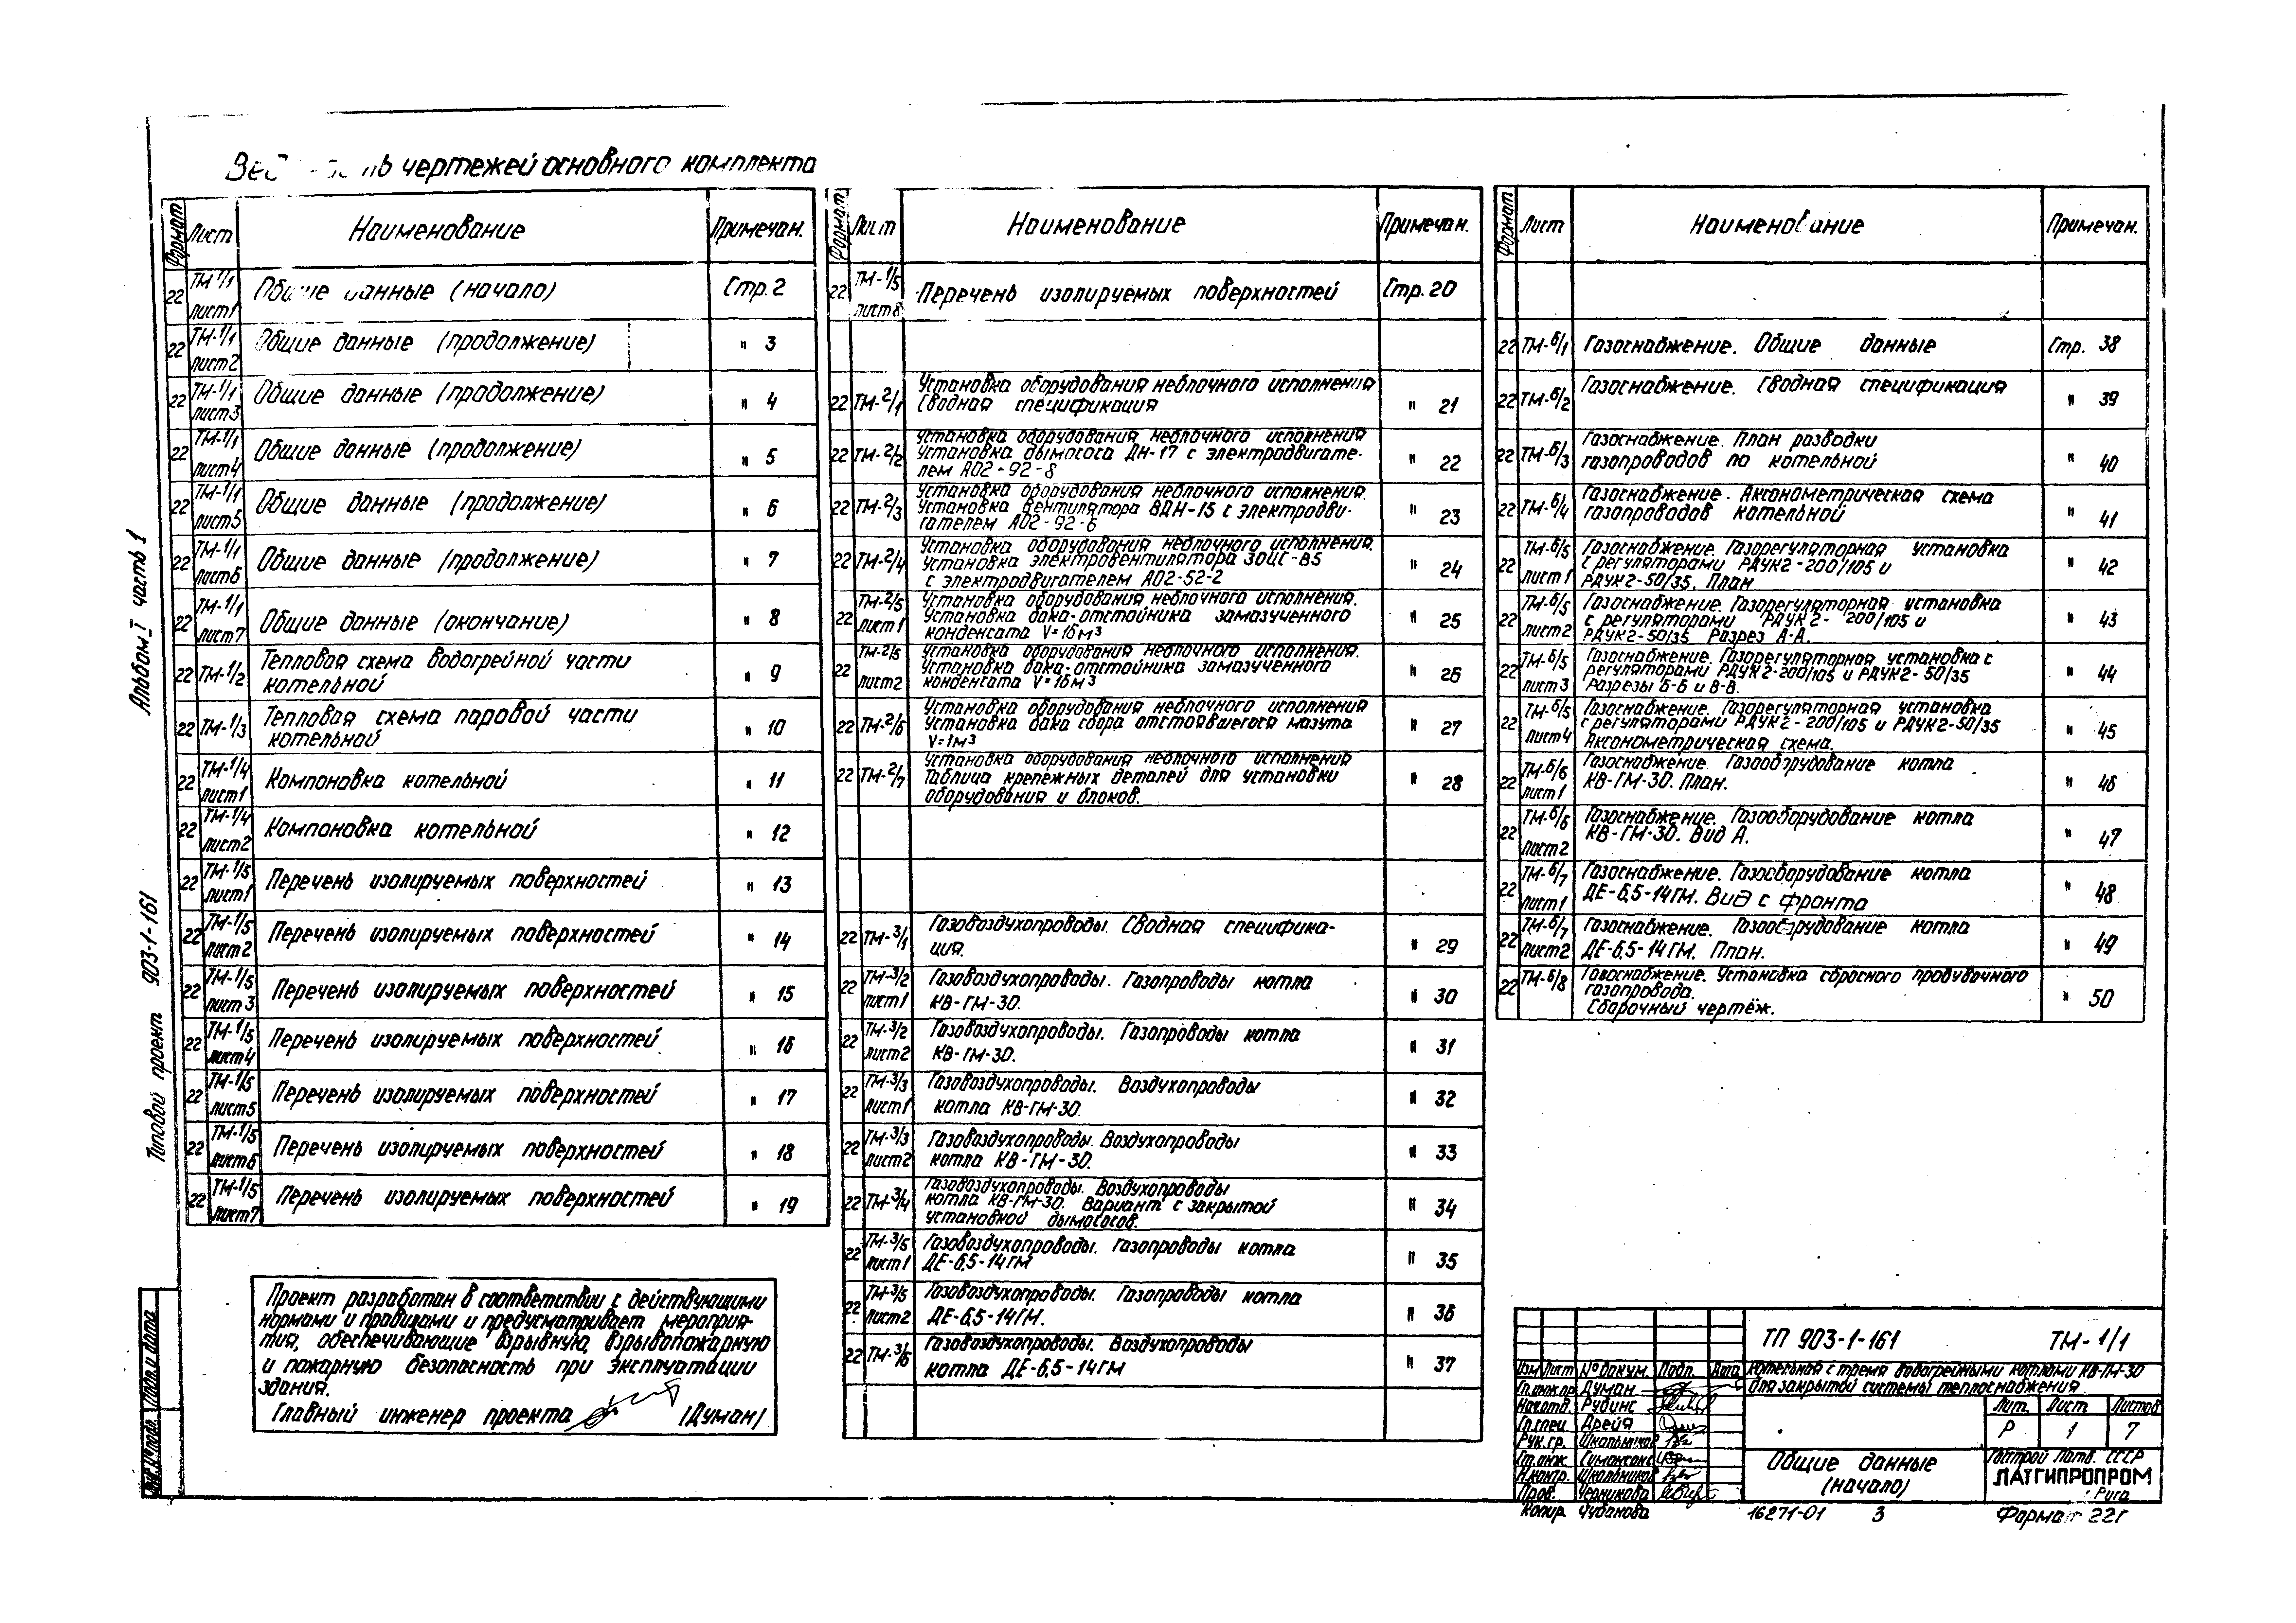 чертежей основного комплекта
Формат Лист Наименование Примечан.
22 ТМ-1/1 лист1 данные (начало) Стр. 2
22 ТМ-1/1 лист2 Общие данные (продолжение) " 3
22 ТМ-1/1 лист3 Общие данные (продолжение) " 4
22 ТМ-1/1 лист4 Общие данные (продолжение) " 5
22 ТМ-1/1 лист5 Общие данные (продолжение) " 6
22 ТМ-1/1 лист6 Общие данные (продолжение) " 7
22 ТМ-1/1 лист7 Общие данные (окончание) " 8
22 ТМ-1/2 Тепловая схема водогрейной части
котельной " 9
22 ТМ-1/3 Тепловая схема паровой части
котельной " 10
22 ТМ-1/4 лист1 Компоновка котельной " 11
22 ТМ-1/4 лист2 Компоновка котельной " 12
22 ТМ-1/5 лист1 Перечень изолируемых поверхностей " 13
22 ТМ-1/5 лист2 Перечень изолируемых поверхностей " 14
22 ТМ-1/5 лист3 Перечень изолируемых поверхностей " 15
22 ТМ-1/5 лист4 Перечень изолируемых поверхностей " 16
22 ТМ-1/5 лист5 Перечень изолируемых поверхностей " 17
22 ТМ-1/5 лист6 Перечень изолируемых поверхностей " 18
22 ТМ-1/5 лист7 Перечень изолируемых поверхностей " 19
Проект разработан в соответствии с действующими
нормами и правилами и предусматривает мероприя-
тия, обеспечивающие взрывную, взрывопожарную
и пожарную безопасность при эксплуатации
здания.
Главный инженер проекта /Думан/
Формат Лист Наименование Примечан.
22 ТМ-1/5 лист8 Перечень изолируемых поверхностей Стр. 20
22 ТМ-2/1 Установка оборудования неблочного исполнения
Сводная спецификация " 21
22 ТМ-2/2 Установка оборудования неблочного исполнения
Установка дымососа ДН-17 с электродвигате-
лем АО2-92-8 " 22
22 ТМ-2/3 Установка оборудования неблочного исполнения.
Установка вентилятора ВДН-15 с электродви-
гателем АО2-92-6 " 23
22 ТМ-2/4 Установка оборудования неблочного исполнения.
Установка электровентилятора 30ЦС-85
с электродвигателем АО2-52-2 " 24
22 ТМ-2/5 лист1 Установка оборудования неблочного исполнения.
Установка бака-отстойника замазученного
конденсата V=16м³ " 25
22 ТМ-2/5 лист2 Установка оборудования неблочного исполнения.
Установка бака-отстойника замазученного
конденсата V=16м³ " 26
22 ТМ-2/6 Установка оборудования неблочного исполнения
Установка бака сбора отстоявшегося мазута
V=1м³ " 27
22 ТМ-2/7 Установка оборудования неблочного исполнения
Таблица крепежных деталей для установки
оборудования и блоков. " 28
22 ТМ-3/1 Газовоздухопроводы. Сводная специфика-
ция. " 29
22 ТМ-3/2 лист1 Газовоздухопроводы. Газопроводы котла
КВ-ГМ-30. " 30
22 ТМ-3/2 лист2 Газовоздухопроводы. Газопроводы котла
КВ-ГМ-30. " 31
22 ТМ-3/3 лист1 Газовоздухопроводы. Воздухопроводы
котла КВ-ГМ-30. " 32
22 ТМ-3/3 лист2 Газовоздухопроводы. Воздухопроводы
котла КВ-ГМ-30. " 33
22 ТМ-3/4 Газовоздухопроводы. Воздухопроводы
котла КВ-ГМ-30. Вариант с закрытой
установкой дымососов. " 34
22 ТМ-3/5 лист1 Газовоздухопроводы. Газопроводы котла
ДЕ-6,5-14ГМ " 35
22 ТМ-3/5 лист2 Газовоздухопроводы. Газопроводы котла
ДЕ-6,5-14ГМ. " 36
22 ТМ-3/6 Газовоздухопроводы. Воздухопроводы
котла ДЕ-6,5-14ГМ " 37
Формат Лист Наименование Примечан.
22 ТМ-6/1 Газоснабжение. Общие данные Стр. 38
22 ТМ-6/2 Газоснабжение. Сводная спецификация " 39
22 ТМ-6/3 Газоснабжение. План разводки
газопроводов по котельной " 40
22 ТМ-6/4 Газоснабжение. Аксонометрическая схема
газопроводов котельной " 41
22 ТМ-6/5 лист1 Газоснабжение. Газорегуляторная установка
с регуляторами РДУК2-200/105 и
РДУК2-50/35. План " 42
22 ТМ-6/5 лист2 Газоснабжение. Газорегуляторная установка
с регуляторами РДУК2-200/105 и
РДУК2-50/35 Разрез А-А. " 43
22 ТМ-6/5 лист3 Газоснабжение. Газорегуляторная установка с
регуляторами РДУК2-200/105 и РДУК2-50/35
Разрезы Б-Б и В-В. " 44
22 ТМ-6/5 лист4 Газоснабжение. Газорегуляторная установка
с регуляторами РДУК2-200/105 и РДУК2-50/35
Аксонометрическая схема. " 45
22 ТМ-6/6 лист1 Газоснабжение. Газооборудование котла
КВ-ГМ-30. План. " 46
22 ТМ-6/6 лист2 Газоснабжение. Газооборудование котла
КВ-ГМ-30. Вид А. " 47
22 ТМ-6/7 лист1 Газоснабжение. Газооборудование котла
ДЕ-6,5-14ГМ. Вид с фронта " 48
22 ТМ-6/7 лист2 Газоснабжение. Газооборудование котла
ДЕ-6,5-14ГМ. План. " 49
22 ТМ-6/8 Газоснабжение. Установка сбросного продувочного
газопровода.
Сборочный чертёж. " 50
Альбом I часть 1
Типовой проект 903-1-161
Подп. и дата
ТП 903-1-161 ТМ-1/1
Изм Лист № докум. Подп. Дата
Котельная с тремя водогрейными котлами КВ-ГМ-30
для закрытой системы теплоснабжения.
Гл.инж.пр Думан
Нач.отв. Рудинс
Гл.спец. Дрейя
Рук.гр. Школьников
Ст.инж.
Н.контр. Школьников
Пров. Черникова
Лит. Лист Листов
Р 1 7
Общие данные
(начало)
Госстрой Латв. ССР
ЛАТГИПРОПРОМ
г. Рига
Копир. Чубанова 16271-01 3 Формат 22г